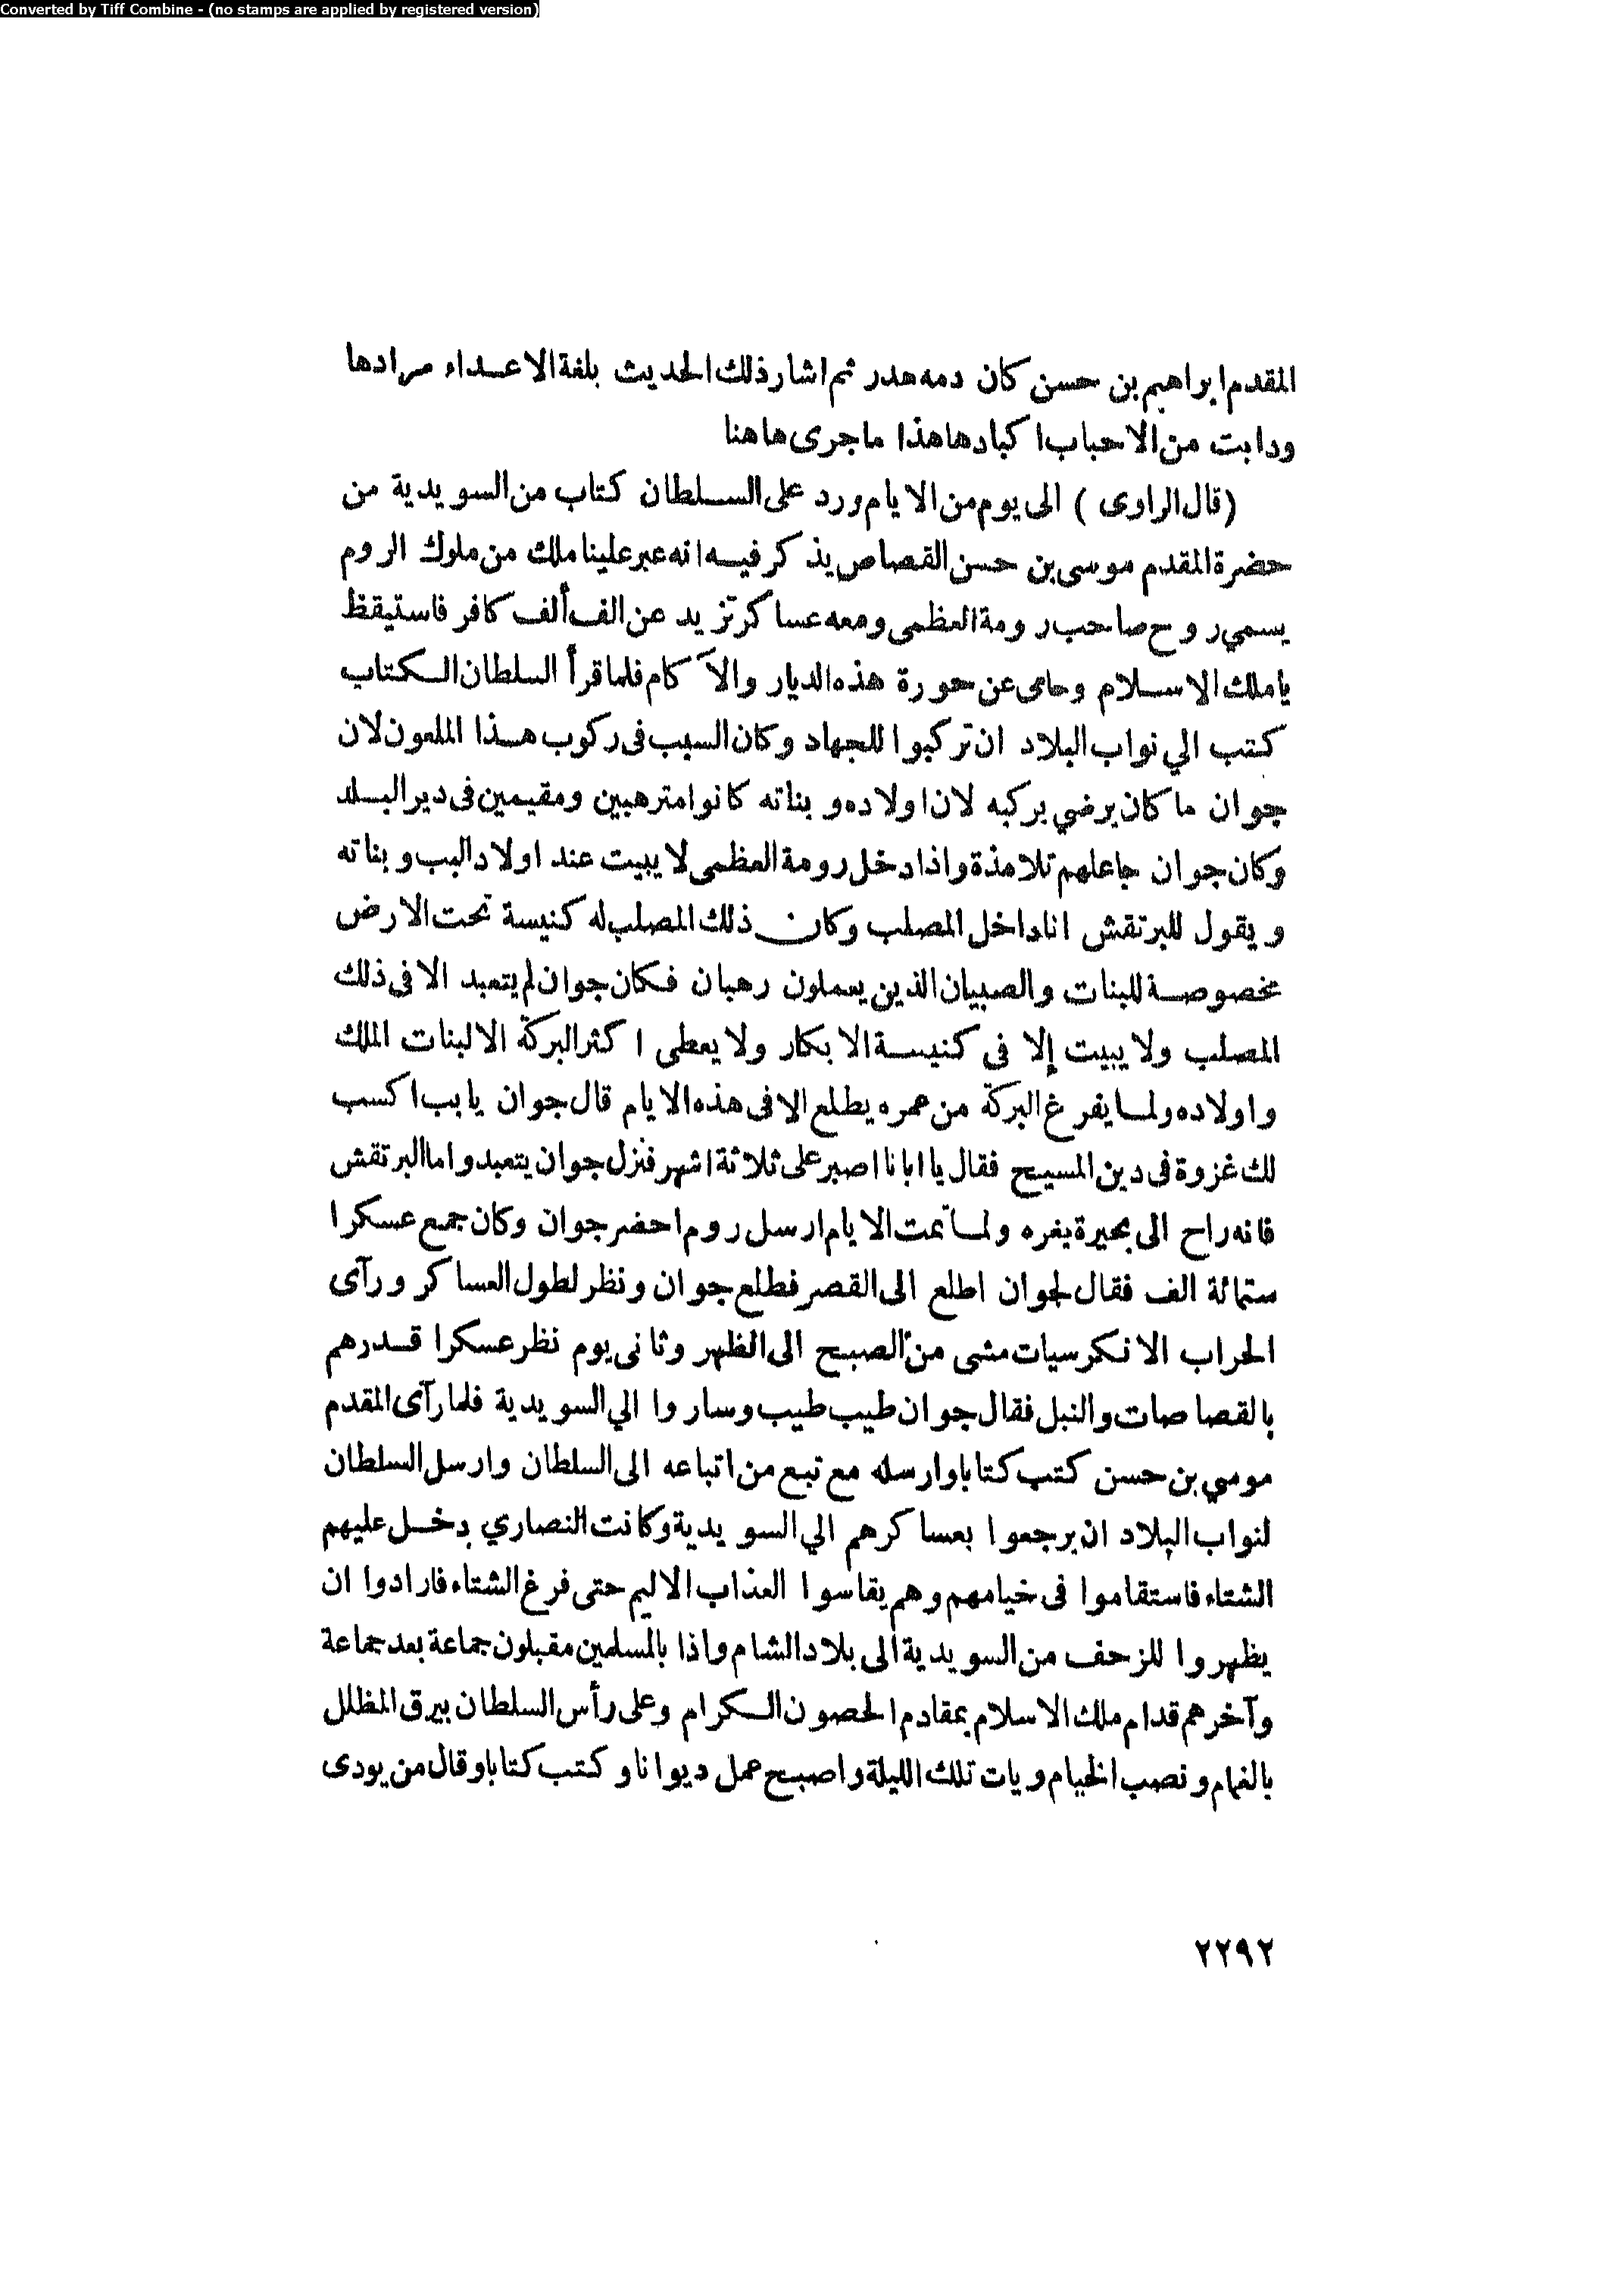 Converted by Tiff Combine - (no stamps are applied by registered version)
المقدم ابراهيم بن حسن كان دمه هدر ثم اشار ذلك الحديث بلغة الاعداء مرادها
ودابت من الاحباب اكبادها هذا ماجرى هاهنا
(قال الراوى) الى يوم من الايام ورد على السلطان كتاب من السويدية من
حضرة المقدم موسى بن حسن القصاص يذكر فيه انه عبر علينا ملك من ملوك الروم
يسمي روح صاحب رومة العظمى ومعه عساكر تزيد عن الف ألف كافر فاستيقظ
ياملك الاسلام وحامى عن حورة هذه الديار والآكام فلما قرأ السلطان الكتاب
كتب الي نواب البلاد ان تركبوا للجهاد وكان السبب فى ركوب هذا الملعون لان
جوان ما كان يرضي يركبه لان اولاده وبناته كانوا مترهبين ومقيمين فى دير البلد
وكان جوان جاعلهم تلامذة واذا دخل رومة العظمى لا يبيت عند اولاد البب وبناته
ويقول للبرتقش انا داخل المصلب وكان ذلك المصلب له كنيسة تحت الارض
مخصوصة للبنات والصبيان الذين يعملون رهبان فكان جوان لم يتعبد الا فى ذلك
المصلب ولا يبيت إلا فى كنيسة الابكار ولا يعطى اكثر البركة الا لبنات الملك
واولاده ولما يفرغ البركة من عمره يطلع الا فى هذه الايام قال جوان يابب اكسب
لك غزوة فى دين المسيح فقال يا ابانا اصبر على ثلاثة اشهر فنزل جوان يتعبد واما البرتقش
فانه راح الى بحيرة يغره ولما تمت الايام ارسل روم احضر جوان وكان جمع عسكرا
ستمائة الف فقال لجوان اطلع الى القصر فطلع جوان ونظر لطول العساكر ورآى
الحراب الانكرسيات مشى من الصبح الى الظهر وثانى يوم نظر عسكرا قدرهم
بالقصاصات والنبل فقال جوان طيب طيب وساروا الي السويدية فلما رآى المقدم
موسي بن حسن كتب كتابا وارسله مع تبع من اتباعه الى السلطان وارسل السلطان
لنواب البلاد ان يرجعوا بعساكرهم الي السويدية وكانت النصاري دخل عليهم
الشتاء فاستقاموا فى خيامهم وهم يقاسوا العذاب الاليم حتى فرغ الشتاء فارادوا ان
يظهروا للزحف من السويدية الى بلاد الشام واذا بالمسلمين مقبلون جماعة بعد جماعة
وآخرهم قدام ملك الاسلام بمقادم الحصون الكرام وعلى رأس السلطان بيرق المظلل
بالغمام ونصب الخيام وبات تلك الليلة واصبح عمل ديوانا وكتب كتابا وقال من يودى
٢٢٩٢